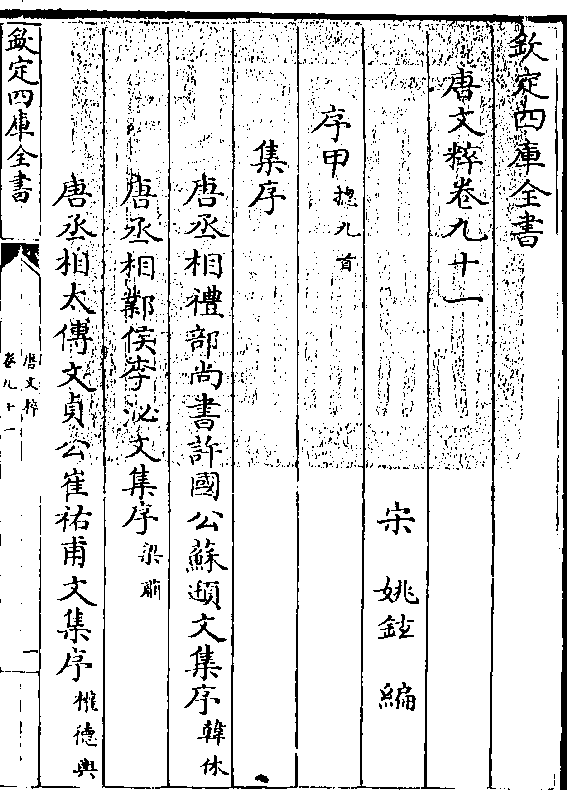 欽定四庫全書
唐文粹卷九十一
宋 姚鉉 編
序甲 總九首
集序
唐丞相禮部尚書許國公蘇頲文集序 韓休
唐丞相鄴侯李泌文集序 梁肅
唐丞相太傅文貞公崔祐甫文集序 權德輿
欽定四庫全書
唐文粹
卷九十一
一